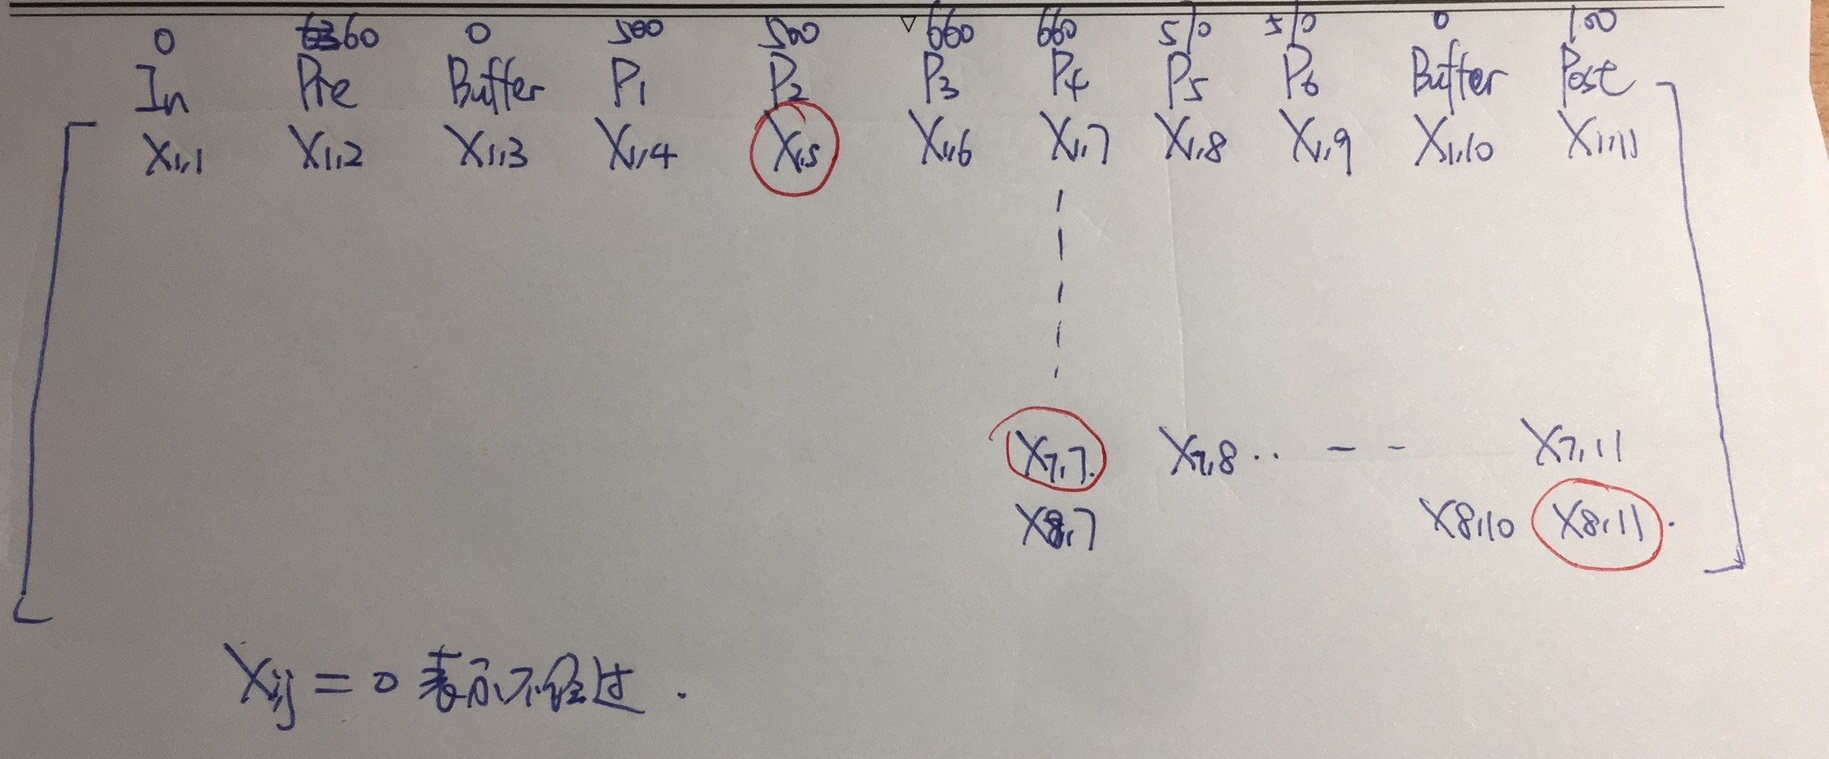 0 60 0 500 500 660 660 510 510 0 100
In Pre Buffer P1 P2 P3 P4 P5 P6 Buffer Post
X1,1 X1,2 X1,3 X1,4 X1,5 X1,6 X1,7 X1,8 X1,9 X1,10 X1,11
X7,7 X7,8 .. - - X7,11
X8,7 X8,10 X8,11.
Xij = 0 表示不经过.